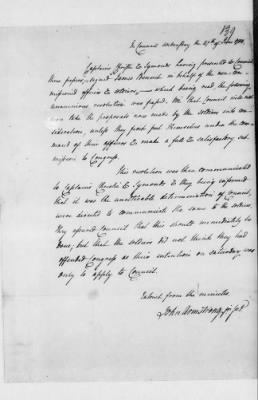 139
In Council Wednesday the 25th of June 1783.
Captains Christie & Symonds having presented to Council
three papers, signed James Bennett in behalf of the non com-
missioned officers & soldiers, — which being read the following
unanimous resolution was passed. viz that Council will not
take the proposals now made by the soldiers into con-
sideration, unless they first put themselves under the com-
mand of their officers & make a full & satisfactory sub-
mission to Congress.
This resolution was then communicated
to Captains Christie & Symonds & they being informed
that it was the unalterable determination of Council,
were desired to communicate the same to the soldiers,
they assured Council that this should immediately be
done; but that the soldiers did not think they had
offended Congress as their intention on saturday was
only to apply to Council.
Extract from the minutes
John Armstrong jr Sec.